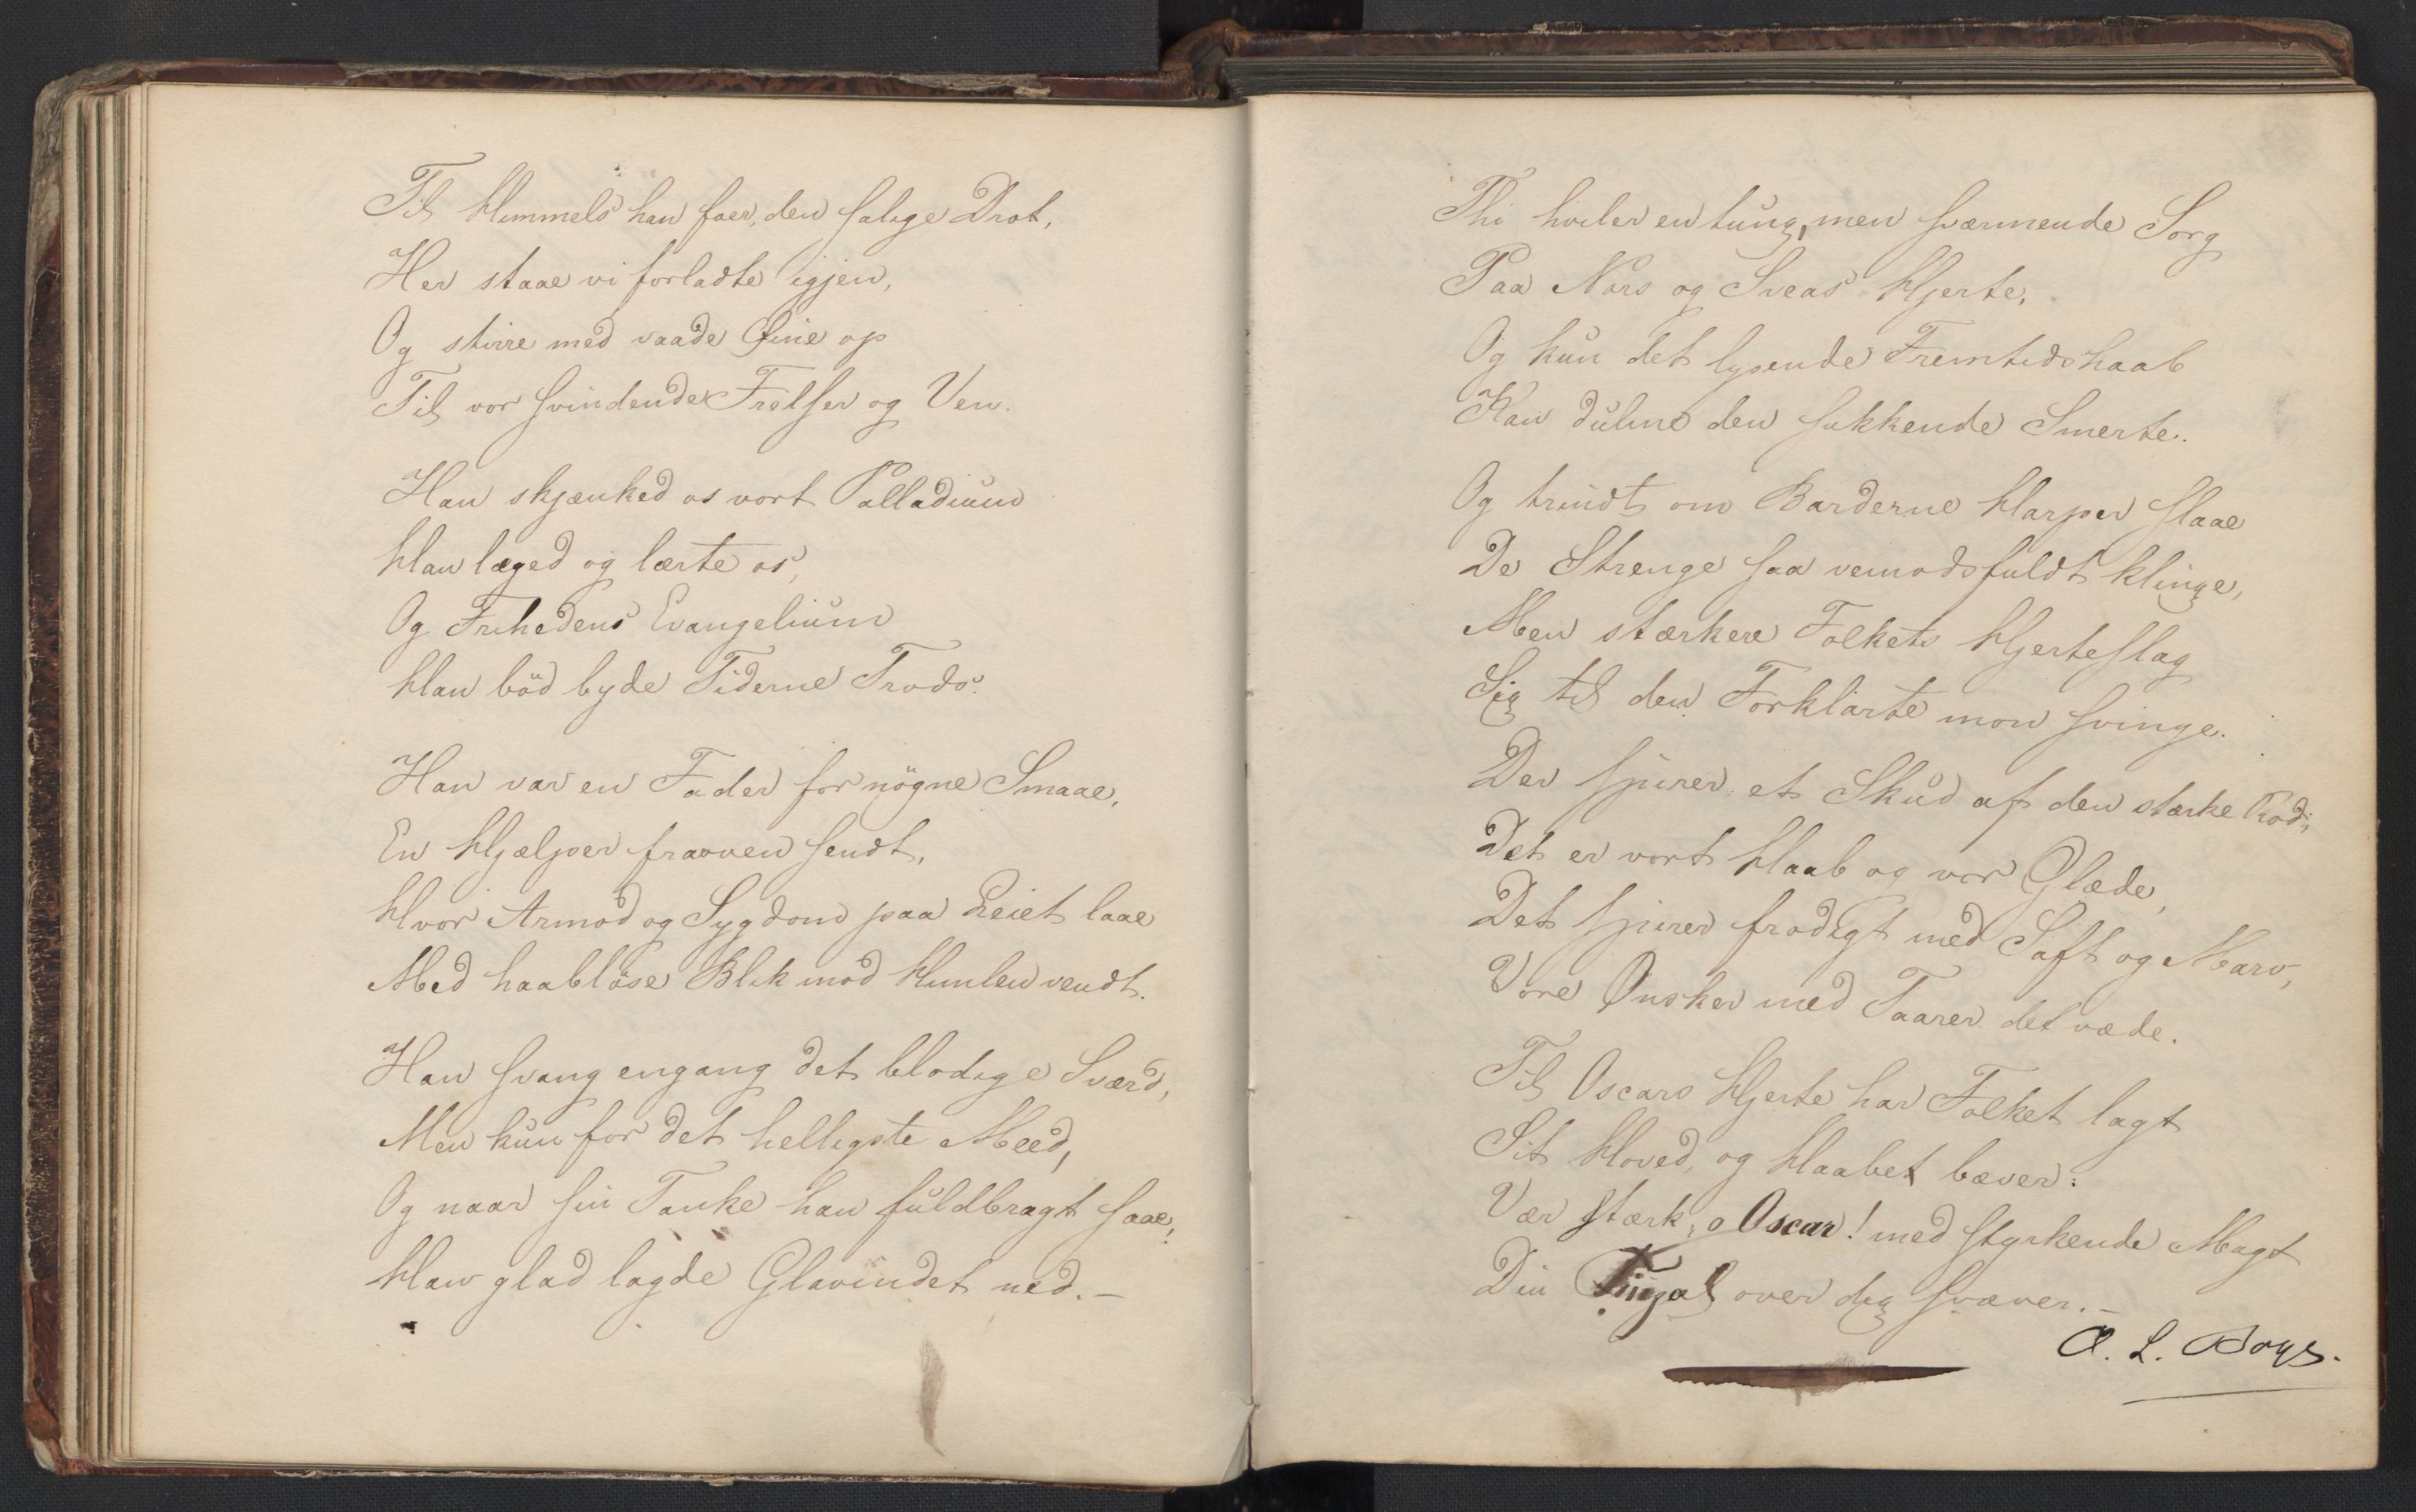 Til Himmels han foer, den salige Drot,
Her staae vi forladte igjen,
Og stirre med vaade Øine op
Til vor svindende Frelser og Ven.
Han skjænked os vort Palladium
Han læged og lærte os,
Og Frihedens Evangelium
Han böd byde Tiderne Trods.
Han var en Fader for nögne Smaae,
En Hjælper fraoven sendt,
Hvor Armod og Sygdom paa Leiet laae
Med haablöse Blik mod Himlen vendt.
Han svang engang det blodige Sværd,
Men kun for det helligste Meed,
Og naar sin Tanke han fuldbragt saae,
Han glad lagde Glavindet ned. –
Thi hviler en tung, men sværmende Sorg
Paa Nors og Sveas Hjerte,
Og kun det lysende Fremtidshaab
Kan dulme den sukkende Smerte.
Og trindt om Barderne Harper slaae
De Strenge saa vemodsfuldt klinge,
Men stærkere Folkets Hjerteslag
Sig til den Forklarte mon svinge.
Der spirer et Skud af den stærke Rod;
Det er vort Haab og vor Glæde,
Det spirer frodigt med Saft og Marv,
Vore Ønsker med Taarer det væde.
Til Oscars Hjerte har Folket lagt
Sit Hoved, og Haabet bæver:
Vær stærk, o Oscar! med styrkende Magt
Din Fingal over dig svæver. –
O. L. Boys.